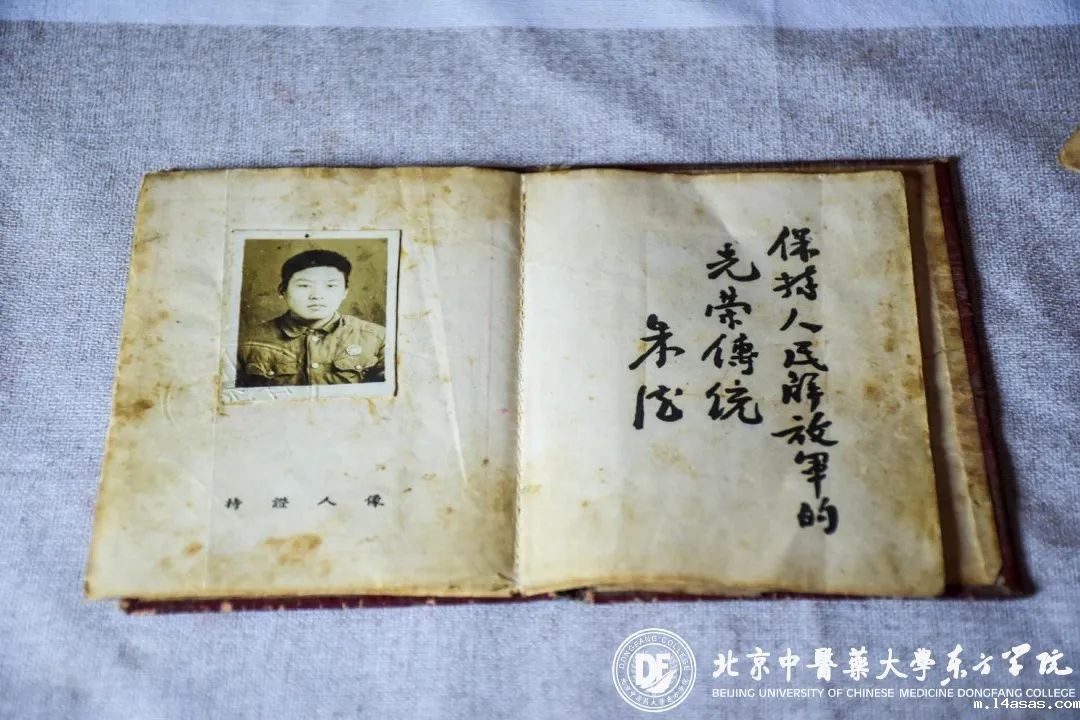 持證人像
保持人民解放军的
光荣傳統
朱德
DONGFANG COLLEGE
DF
北京中医药大学东方学院
北京中醫藥大學东方学院
BEIJING UNIVERSITY OF CHINESE MEDICINE DONGFANG COLLEGE
m.14asas.com